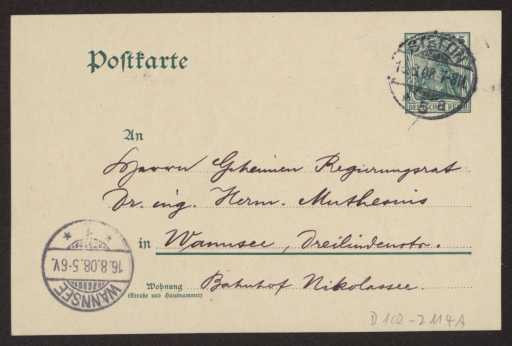 Postkarte
STETTIN
5 a
An
Herrn Geheimen Regierungsrat
Dr. ing. Herm. Muthesius
in Wannsee, Dreilindenstr.
Wohnung
(Straße und Hausnummer)
Bahnhof Nikolassee.
16.8.08.5-6V.
WANNSEE
D 102-2114A